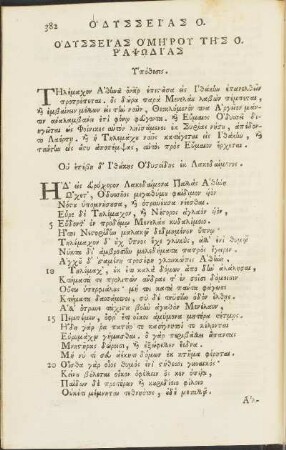 382 ὈΔΥΣΣΕΊΑΣ Ο.
ὈΔΥΣΣΕΊΑΣ ὉΜΉΡΟΥ ΤΗ͂Σ Ο.
ῬΑΨΩΔΊΑΣ
Ὑπόθεσις.
Τηλέμαχον Ἀθηνᾶ ὄναρ ἐπιστᾶσα εἰς Ἰθάκην ἐπανελθεῖν
προτρέπεται. ὁ δῶρα παρὰ Μενελάου λαβὼν
καὶ ἐμβαίνειν μέλλων εἰς τὴν ναῦν, Θεοκλύμενον
μάντιν ἀναλαμβάνει ἐπὶ φόνῳ φεύγοντα. καὶ Εὔμαιος Ὀδυσσεῖ
Φοίνικες αὐτὸν
Λαέρτῃ. ἡ δὲ Τηλεμάχου ναῦς κατάγεται εἰς Ἰθάκην, καὶ
ταύτην εἰς ἄστυ πρὸς Εὔμαιον ἔρχεται.
Ἡ δ' εἰς Λακεδαίμονα Παλλὰς Ἀθήνη
ᾬχετ', Ὀδυσσῆος μεγαθύμου φαίδιμον υἱὸν
Νόστου ὑπομνήσουσα, καὶ ὀτρυνέουσα νέεσθαι.
Εὗρε δὲ Τηλέμαχον, καὶ Νέστορος ἀγλαὸν υἱὸν,
5 Εὕδοντ' ἐν προδόμῳ Μενελάου κυδαλίμοιο·
Ἤτοι Νεστορίδην μαλακῷ δεδμημένον ὕπνῳ·
Τηλέμαχον δ' οὐχ ὕπνος ἔχε γλυκὺς, ἀλλ' ἐνὶ θυμῷ
Νύκτα δι' ἀμβροσίην μελεδήματα πατρὸς ἔγειρεν.
Ἀγχοῦ δ' ἱσταμένη προσέφη γλαυκῶπις Ἀθήνη·
10 Τηλέμαχ', οὐκ ἔτι καλὰ δόμων ἄπο τῆλ' ἀλάλησαι,
Κτήματά τε προλιπὼν ἄνδρας τ' ἐν σοῖσι δόμοισιν
Οὕτω ὑπερφιάλους· μή τοι κατὰ πάντα φάγωσι
Κτήματα δασσάμενοι, σὺ δὲ τηϋσίην ὁδὸν ἔλθῃς.
Ἀλλ' ὄτρυνε τάχιστα βοὴν ἀγαθὸν Μενέλαον,
15 Πεμπέμεν, ὄφρ' ἔτι οἴκοι ἀμύμονα μητέρα τέτμῃς.
Ἤδη γάρ ῥα πατήρ τε κασίγνητοί τε κέλονται
Εὐρυμάχῳ γήμασθαι. ὁ γὰρ περιβάλλει ἅπαντας
Μνηστῆρας δώροισι, καὶ ἐξώφελλεν ἔεδνα.
Μή νύ τι σεῦ ἀέκητι δόμων ἐκ κτῆμα φέρηται.
20 Οἶσθα γὰρ οἷος θυμὸς ἐνὶ στήθεσσι γυναικός·
Κείνου βούλεται οἶκον ὀφέλλειν ὅς κεν ὀπυίῃ,
Παίδων δὲ προτέρων καὶ κουριδίοιο φίλοιο
Οὐκέτι μέμνηται τεθνηότος, οὐδὲ μεταλλᾷ.
Ἀλ-